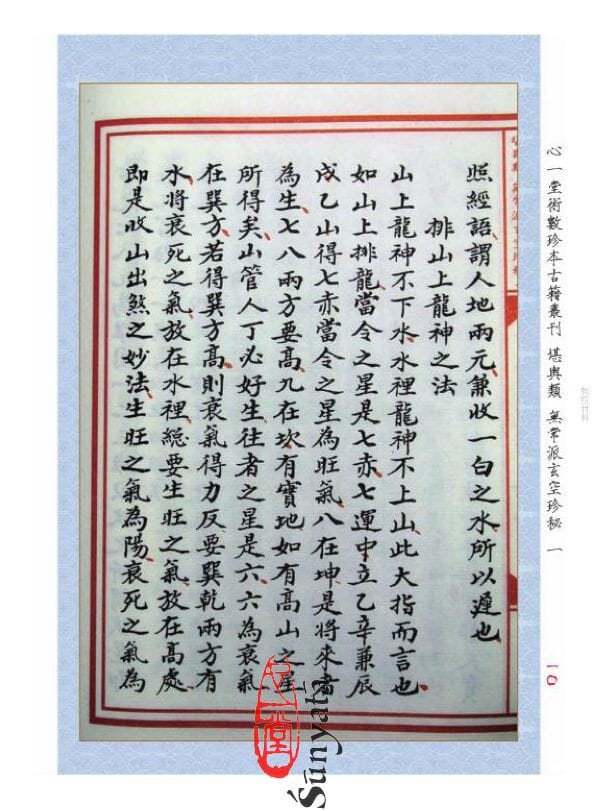 照經語謂人地兩元兼收一白之水所以遲也
排山上龍神之法
山上龍神不下水水裡龍神不上山此大指而言也
如山上排龍當令之星是七赤七運中立乙辛兼辰
戍乙山得七赤當令之星為旺氣八在坤是將來者
為生七八兩方要高九在坎有實地如有高山之星
所得矣山管人丁必好生往者之星是六六為衰氣
在巽方若得巽方高則衰氣得力反要巽乾兩方有
水將衰死之氣放在水裡總要生旺之氣放在高處
即是收山出煞之妙法生旺之氣為陽衰死之氣為
心一堂術數珍本古籍叢刊 堪輿類 無常派玄空珍秘 一
一〇
心一堂
Śūnyatā